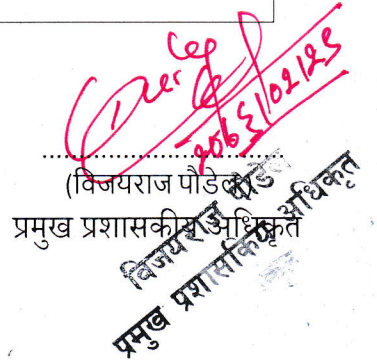 (विजयराज पौडेल)
प्रमुख प्रशासकीय अधिकृत
विजयराज पौडेल
प्रमुख प्रशासकिय अधिकृत